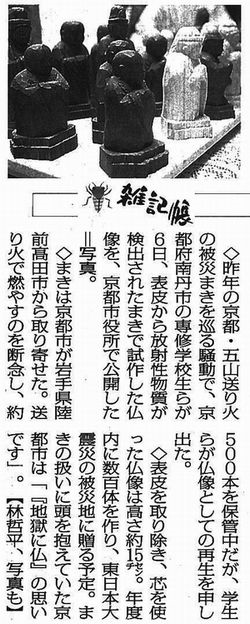 雑記帳
◇昨年の京都・五山送り火
の被災まきを巡る騒動で、京
都府南丹市の専修学校生らが
6日、表皮から放射性物質が
検出されたまきで試作した仏
像を、京都市役所で公開した
=写真。
◇まきは京都市が岩手県陸
前高田市から取り寄せた。送
り火で燃やすのを断念し、約
500本を保管中だが、学生
らが仏像としての再生を申し
出た。
◇表皮を取り除き、芯を使
った仏像は高さ約15㌢。年度
内に数百体を作り、東日本大
震災の被災地に贈る予定。ま
きの扱いに頭を抱えていた京
都市は「『地獄に仏』の思い
です」。【林哲平、写真も】